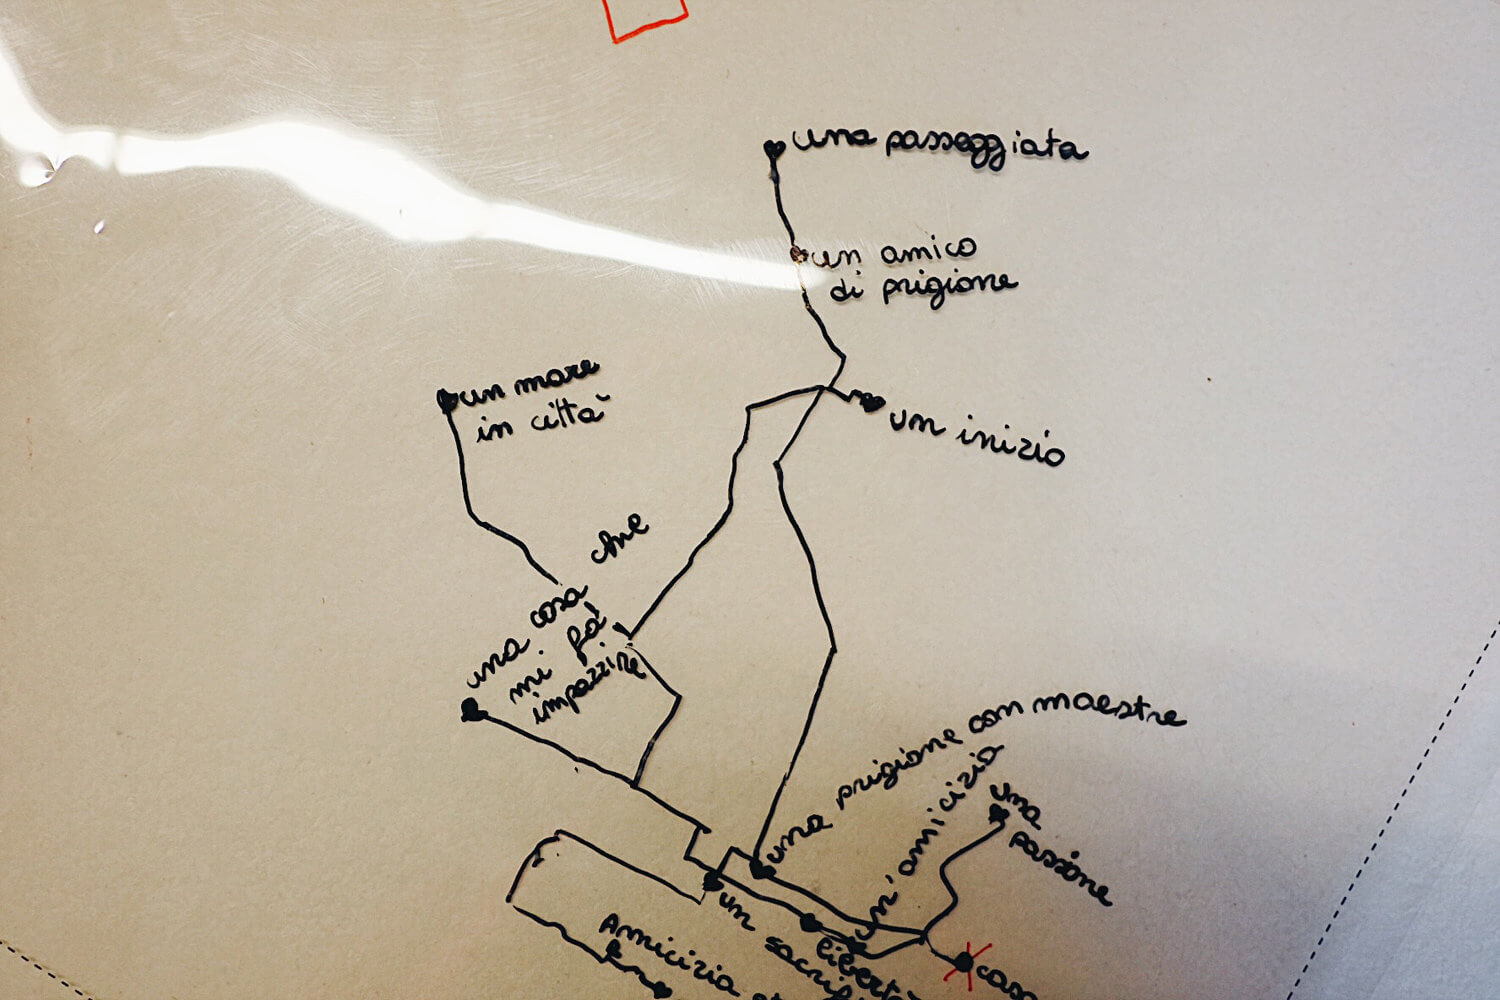 una passeggiata
un amico
di prigione
un mare
in città
un inizio
una cosa che
mi fà
impazzire
una prigione con maestre
un'amicizia
una
passione
un
libertà
Amicizia
casa